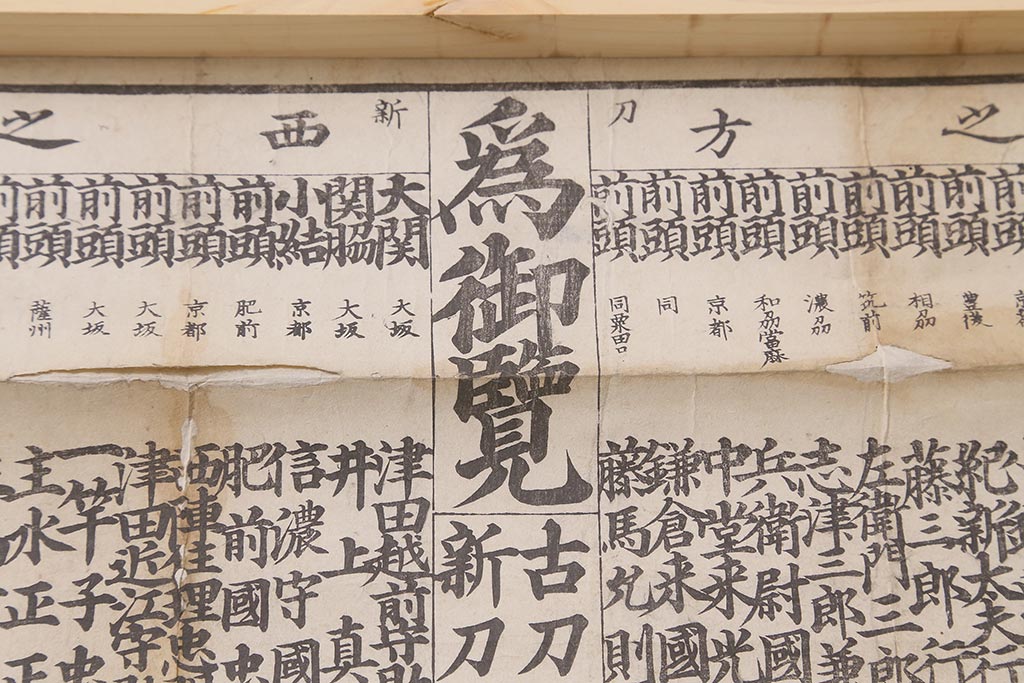 之 方 刀
為御覧
古刀
新刀
新 西 之
前頭 豊後 紀新太夫行
前頭 相刕 藤三郎行
前頭 筑前 左衛門三郎
前頭 濃刕 志津三郎兼
前頭 和刕當麻 兵衛尉國
前頭 京都 中堂来光
前頭 同 鎌倉来國
前頭 同粟田口 藤馬允則
大関 大坂 津田越前守助
関脇 大坂 井上真
小結 京都 信濃守國
前頭 肥前 肥前國忠
前頭 京都
前頭 大坂 津田近江守助
前頭 大坂 一竿子忠
前頭 薩州 主水正正